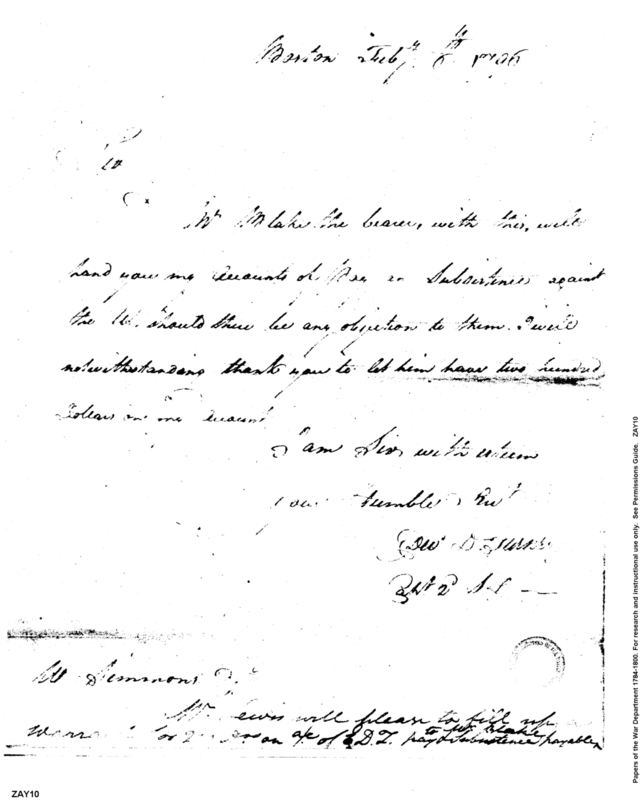 Boston Feby 8th 1796
Mr Blake the bearer, with this, will
hand you my Accounts of Pay & Subsistence against
the U. should there be any objection to them. I will
notwithstanding thank you to let him have two hundred
Dollars on my Account
I am Sir with esteem
your humble Svt
Edw D Turner
2d
W Simmons
Mr Lewis will please to fill up a
for on a/c of E.D.T. pay & subsistence payable
to Mr Blake
Papers of the War Department 1784-1800. For research and instructional use only. See Permissions Guide. ZAY10
ZAY10